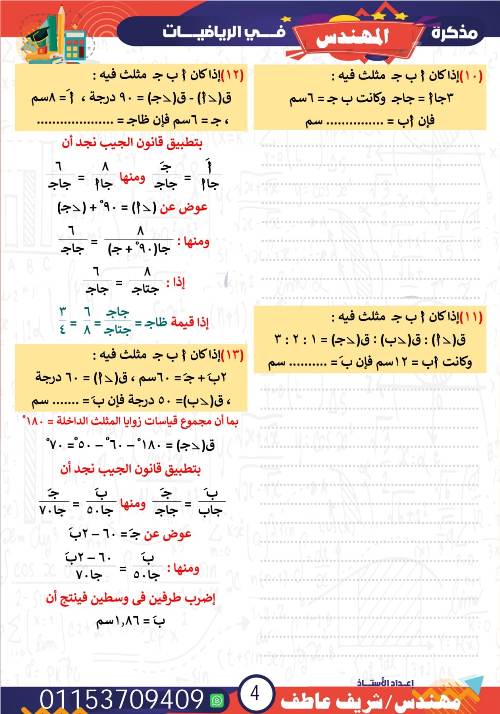 مذكرة المهندس فـــي الرياضيـــات
(١٠) إذا كان أ ب جـ مثلث فيه :
٣جاأ = جاجـ وكانت ب جـ = ٦سم
فإن أب = ............... سم
(١١) إذا كان أ ب جـ مثلث فيه :
ق(∠أ) : ق(∠ب) : ق(∠جـ) = ١ : ٢ : ٣
وكانت أب = ١٢سم فإن بَ = .......... سم
(١٢) إذا كان أ ب جـ مثلث فيه :
ق(∠أ) - ق(∠جـ) = ٩٠ درجة ، أَ = ٨سم
، جـَ = ٦سم فإن ظاجـ = .....................
بتطبيق قانون الجيب نجد أن
أَ/جاأ = جـَ/جاجـ ومنها ٨/جاأ = ٦/جاجـ
عوض عن (∠أ) = ٩٠° + (∠جـ)
ومنها : ٨/جا(٩٠° + جـ) = ٦/جاجـ
إذا : ٨/جتاجـ = ٦/جاجـ
إذا قيمة ظاجـ = جاجـ/جتاجـ = ٦/٨ = ٣/٤
(١٣) إذا كان أ ب جـ مثلث فيه :
٢بَ + جـَ = ٦٠سم ، ق(∠أ) = ٦٠ درجة
، ق(∠ب)= ٥٠ درجة فإن بَ = ....... سم
بما أن مجموع قياسات زوايا المثلث الداخلة = ١٨٠°
ق(∠جـ) = ١٨٠° – ٦٠° – ٥٠° = ٧٠°
بتطبيق قانون الجيب نجد أن
بَ/جاب = جـَ/جاجـ ومنها بَ/جا٥٠ = جـَ/جا٧٠
عوض عن جـَ = ٦٠ – ٢بَ
ومنها : بَ/جا٥٠ = ٦٠ – ٢بَ/جا٧٠
إضرب طرفين فى وسطين فينتج أن
بَ = ١,٨٦سم
اعداد الأستـــاذ
مهندس/ شريف عاطف
4
01153709409